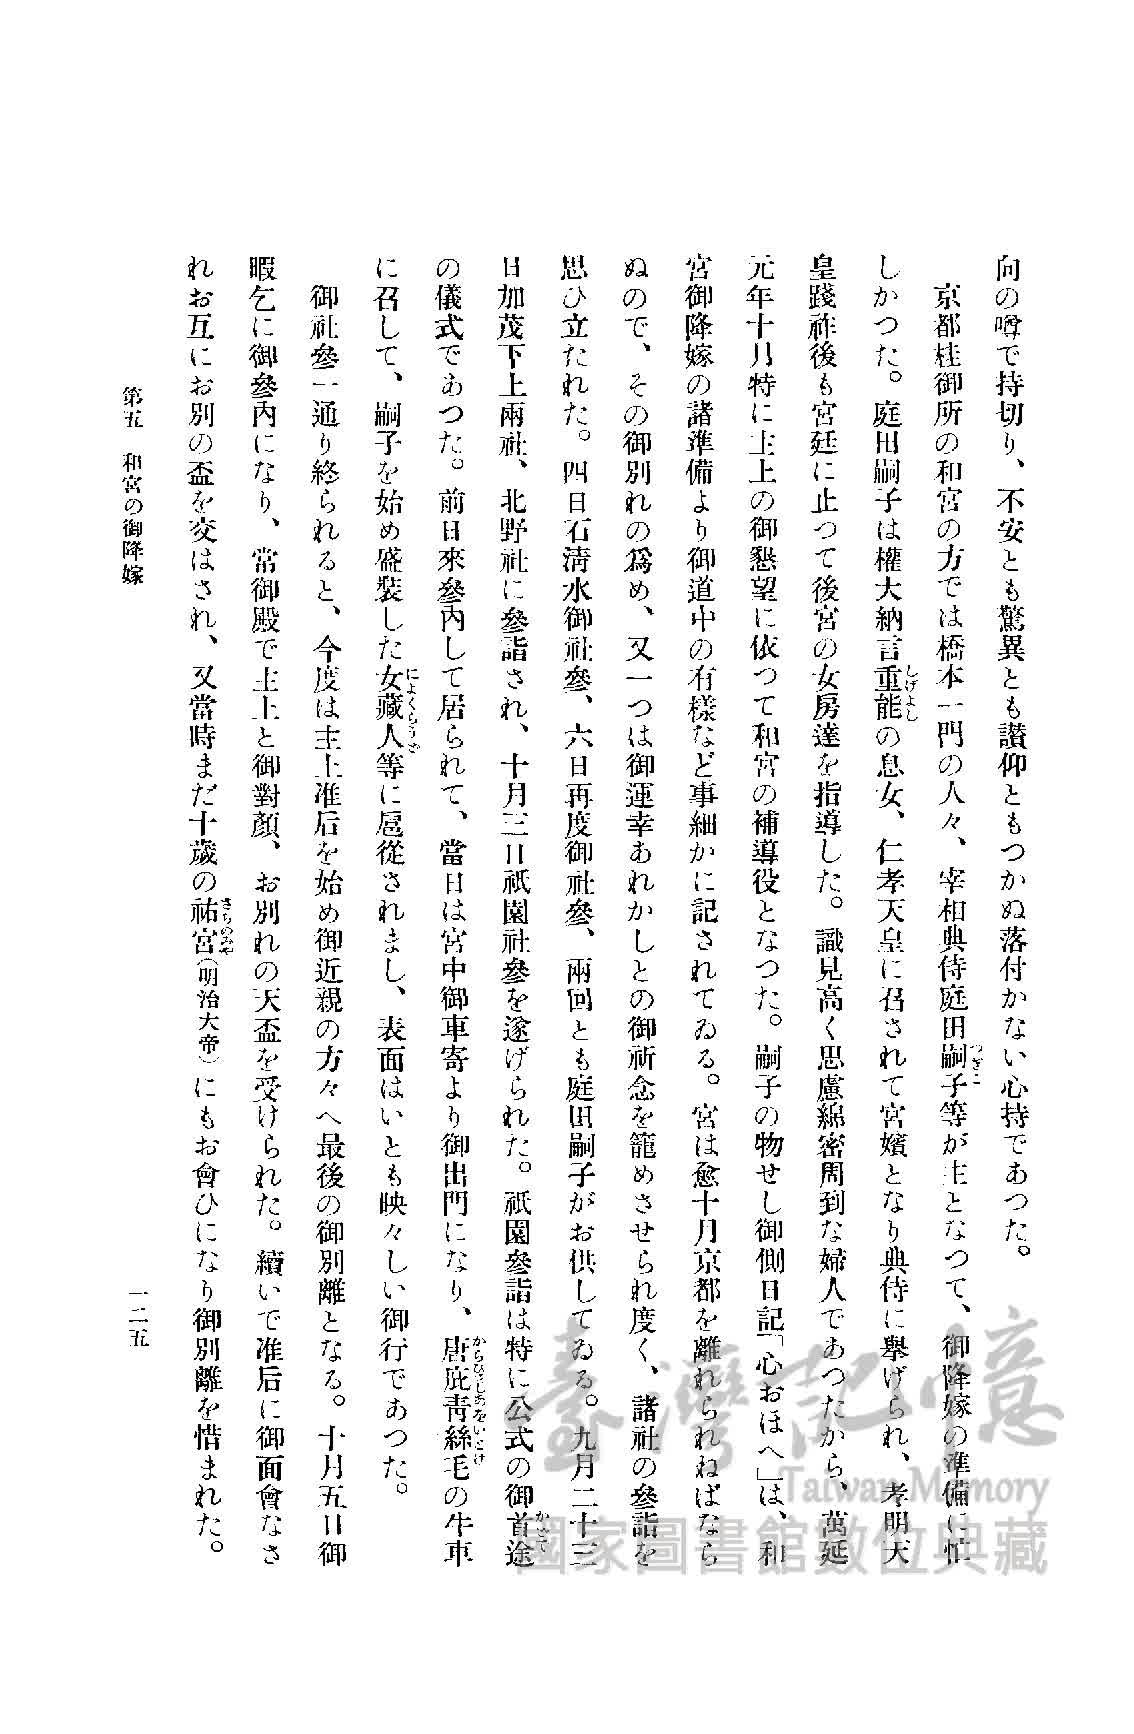 向の噂で持切り、不安とも驚異とも讃仰ともつかぬ落付かない心持であつた。
京都桂御所の和宮の方では橋本一門の人々、宰相典侍庭田嗣子等が主となつて、御降嫁の準備に忙
つぎこ
しかつた。庭田嗣子は權大納言重能の息女、仁孝天皇に召されて宮嬪となり典侍に擧げられ、孝明天
しげよし
皇踐祚後も宮廷に止つて後宮の女房達を指導した。識見高く思慮綿密周到な婦人であつたから、萬延
元年十月特に主上の御懇望に依つて和宮の補導役となつた。嗣子の物せし御側日記「心おほへ」は、和
宮御降嫁の諸準備より御道中の有樣など事細かに記されてゐる。宮は愈十月京都を離れられねばなら
ぬので、その御別れの爲め、又一つは御運幸あれかしとの御祈念を籠めさせられ度く、諸社の參詣を
思ひ立たれた。四日石淸水御社參、六日再度御社參、兩回とも庭田嗣子がお供してゐる。九月二十三
日加茂下上兩社、北野社に參詣され、十月三日祇園社參を遂げられた。祇園參詣は特に公式の御首途
かどで
の儀式であつた。前日來參內して居られて、當日は宮中御車寄より御出門になり、唐庇靑絲毛の牛車
からびさしあをいとげ
に召して、嗣子を始め盛裝した女藏人等に扈從されまし、表面はいとも映々しい御行であつた。
によくらうど
御社參一通り終られると、今度は主上准后を始め御近親の方々へ最後の御別離となる。十月五日御
暇乞に御參內になり、常御殿で主上と御對顏、お別れの天盃を受けられた。續いで准后に御面會なさ
れお互にお別の盃を交はされ、又當時まだ十歲の祐宮(明治大帝)にもお會ひになり御別離を惜まれた。
さちのみや
第五 和宮の御降嫁
一二五
臺灣記憶
Taiwan Memory
國家圖書館數位典藏